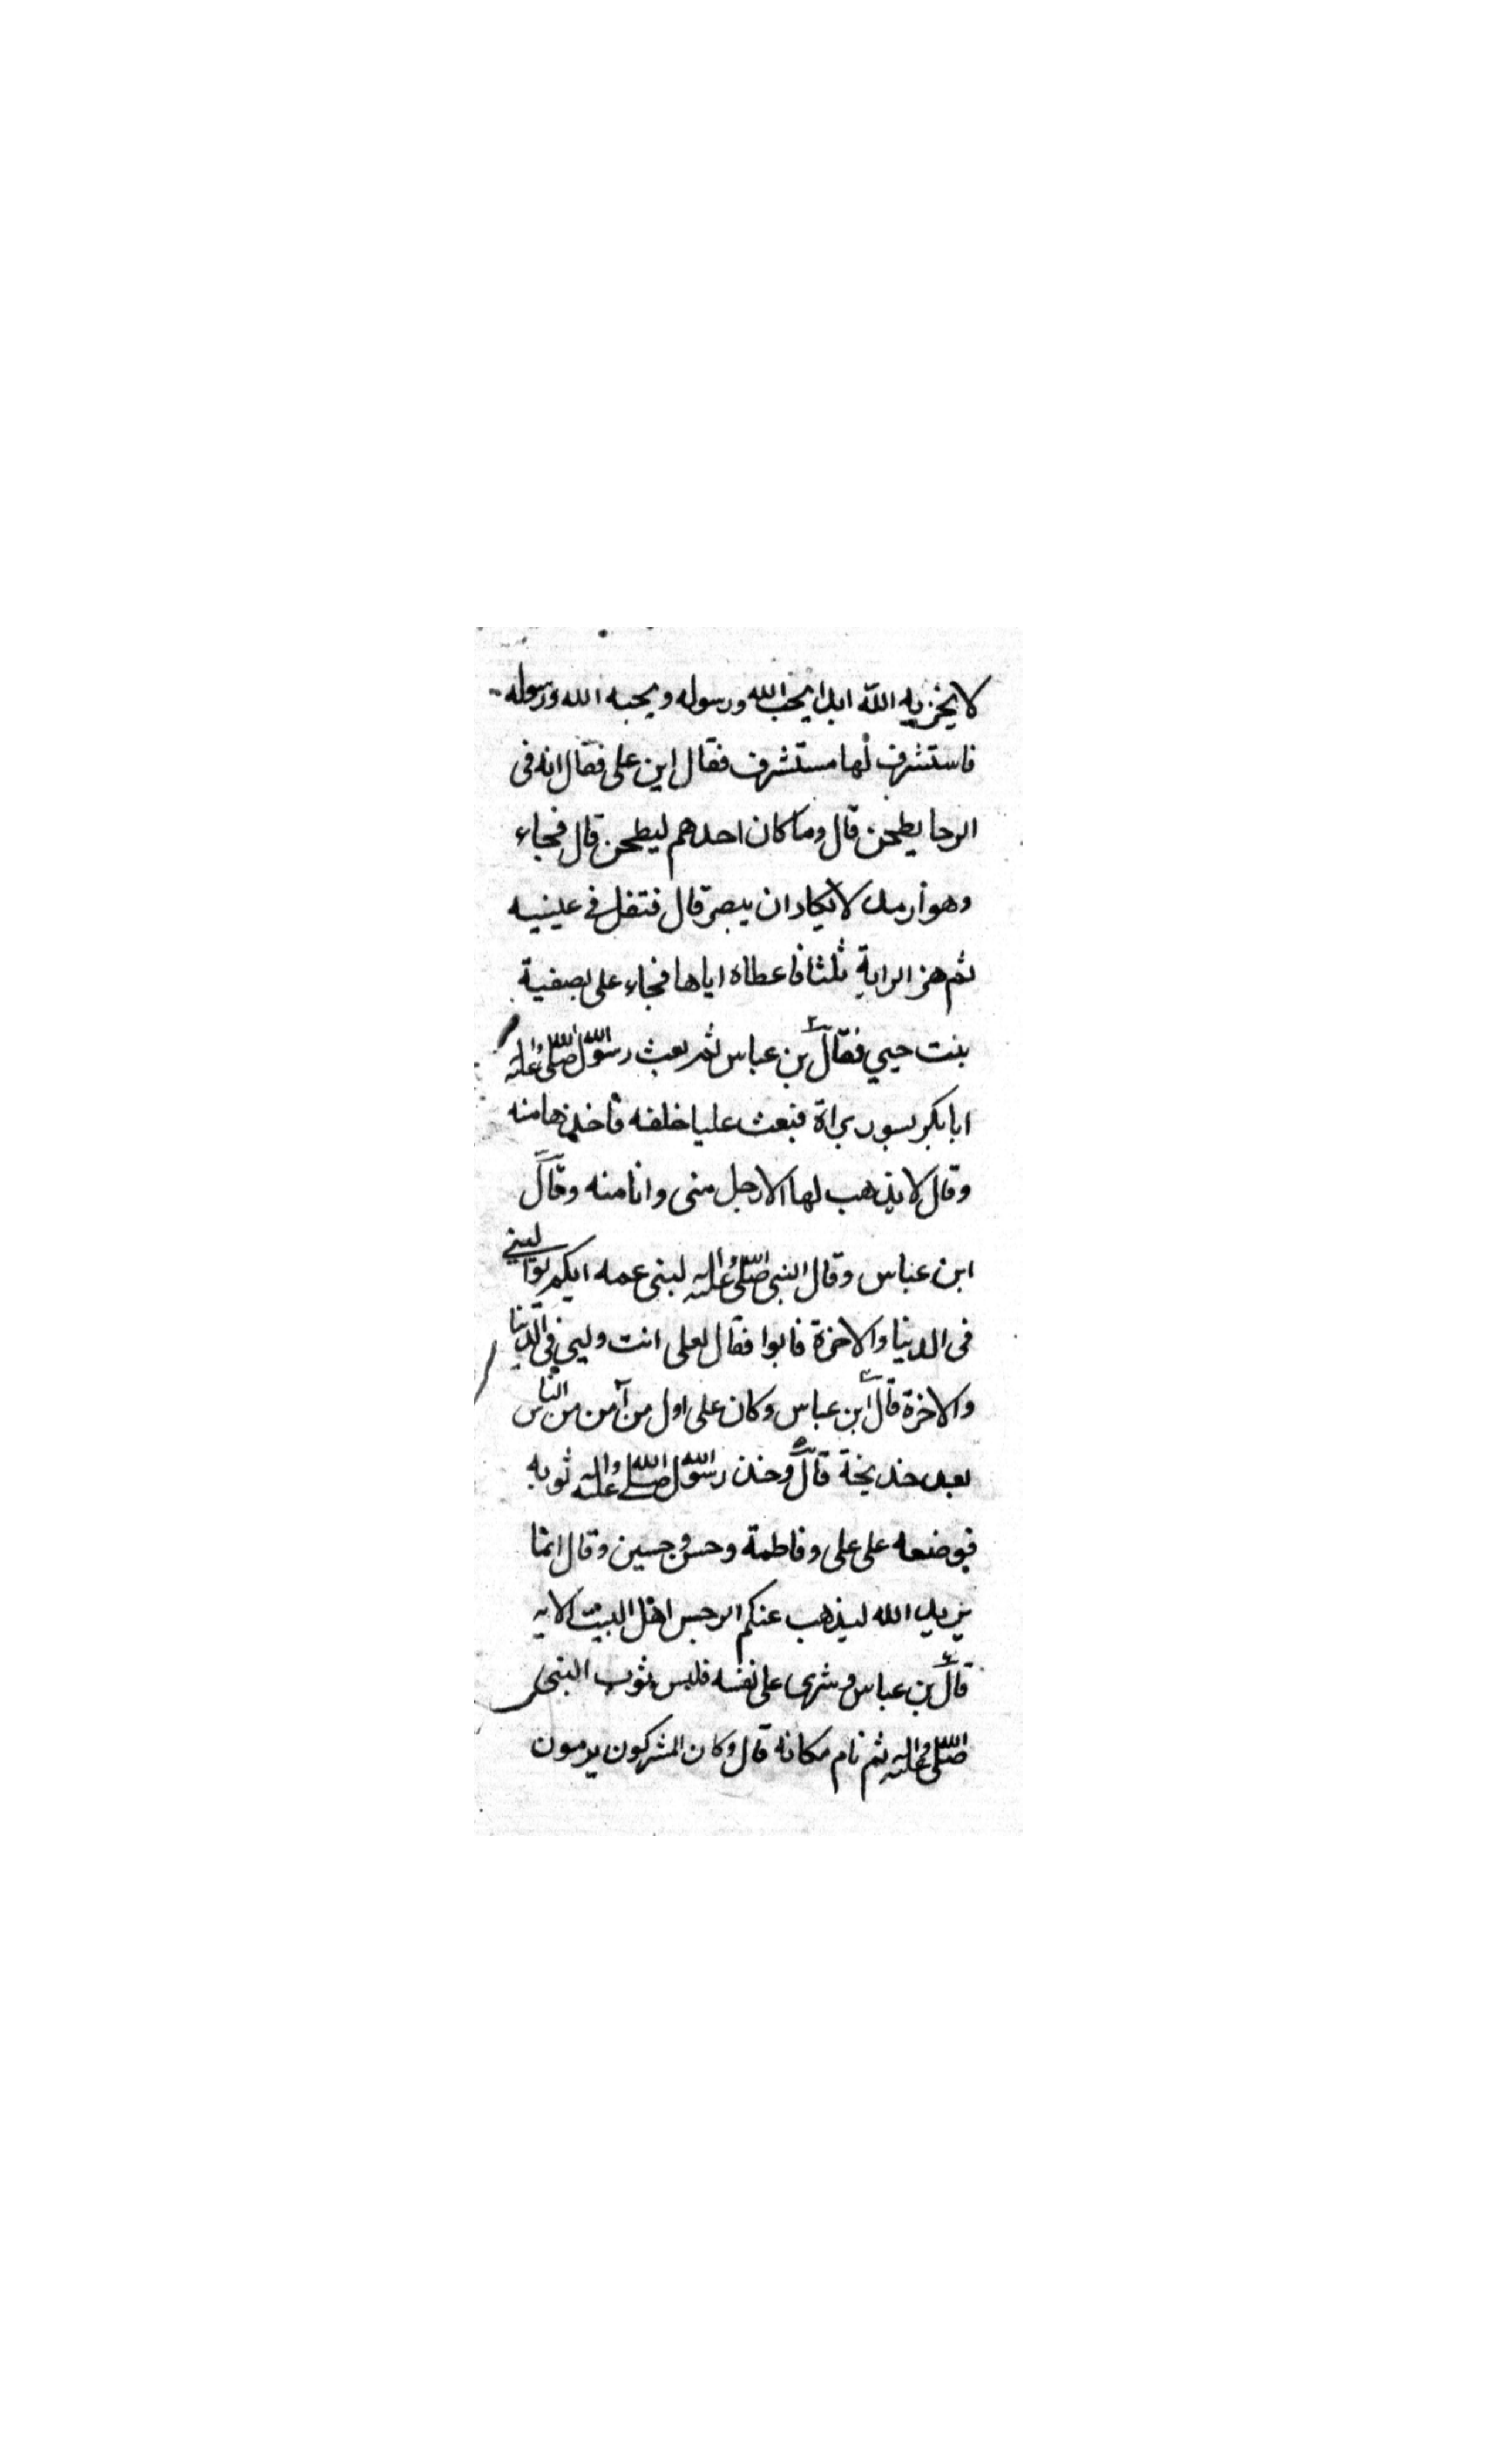 لا يخزيه الله ابدا يحب الله ورسوله ويحبه الله ورسوله
فاستشرف لها مستشرف فقال اين على فقال انه فى
الرحا يطحن قال وما كان احدهم ليطحن قال فجاء
وهو أرمد لا يكاد ان يبصر قال فتفل فى عينيه
ثم هز الراية ثلثا فاعطاه اياها فجاء على بصفية
بنت حيي فقال بن عباس ثم بعث رسول الله صلى الله عليه واله
ابا بكر بسورة براة فبعث عليا خلفه فاخذها منه
وقال لا يذهب لها الا رجل منى وانا منه وقال
ابن عباس وقال النبى صلى الله عليه واله لبنى عمه ايكم يواليني
فى الدنيا والاخرة فابوا فقال لعلى انت وليي فى الدنيا
والاخرة قال ابن عباس وكان على اول من آمن من الناس
بعد خديجة قال وخذ رسول الله صلى الله عليه واله ثوبه
فوضعه على على وفاطمة وحسن وحسين وقال انما
يريد الله ليذهب عنكم الرجس اهل البيت الايه
قال بن عباس وشرى على نفسه فلبس ثوب النبى
صلى الله عليه واله ثم نام مكانه قال وكان المشركون يرمون